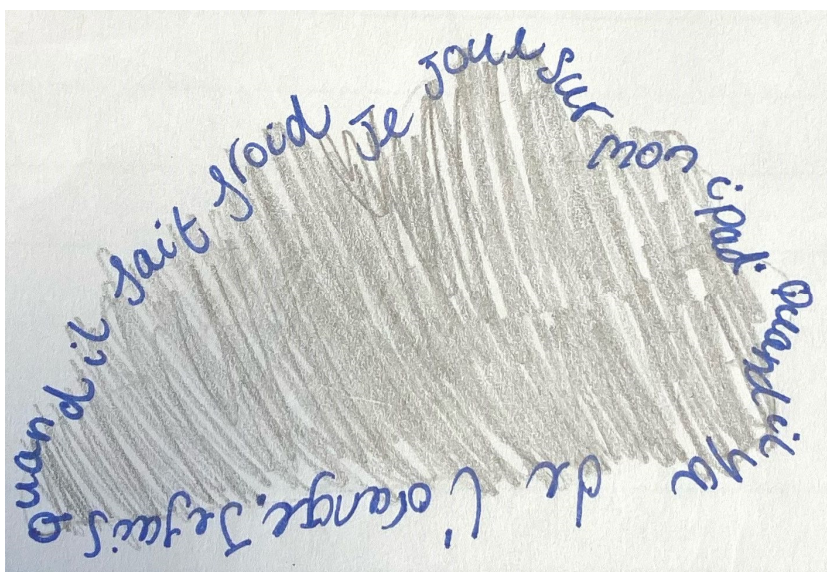 Quand il fait froid Je joue sur mon ipad. Quand il ya de l'orange. Je fais